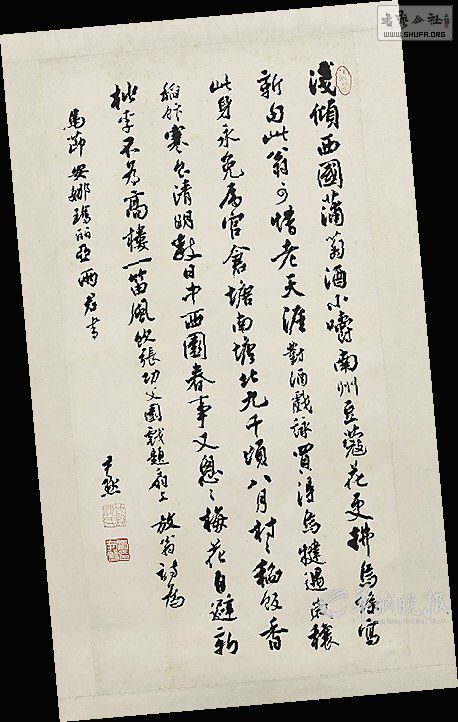 淺傾西國蒲萄酒小嚼南州豆蔻花更拂烏絲寫
新句此翁可惜老天涯對酒戲詠買得烏犍遇歲穰
此身永免屬官倉塘南塘北九千頃八月村村稻飯香
稻飯寒食清明數日中西園春事又悤〻梅花自避新
桃李不為高樓一笛風飲張功父園戲題扇上放翁詩為
安娜瑪丽亞兩君書
尹默
书艺公社
WWW.SHUFA.ORG
羊城晚报